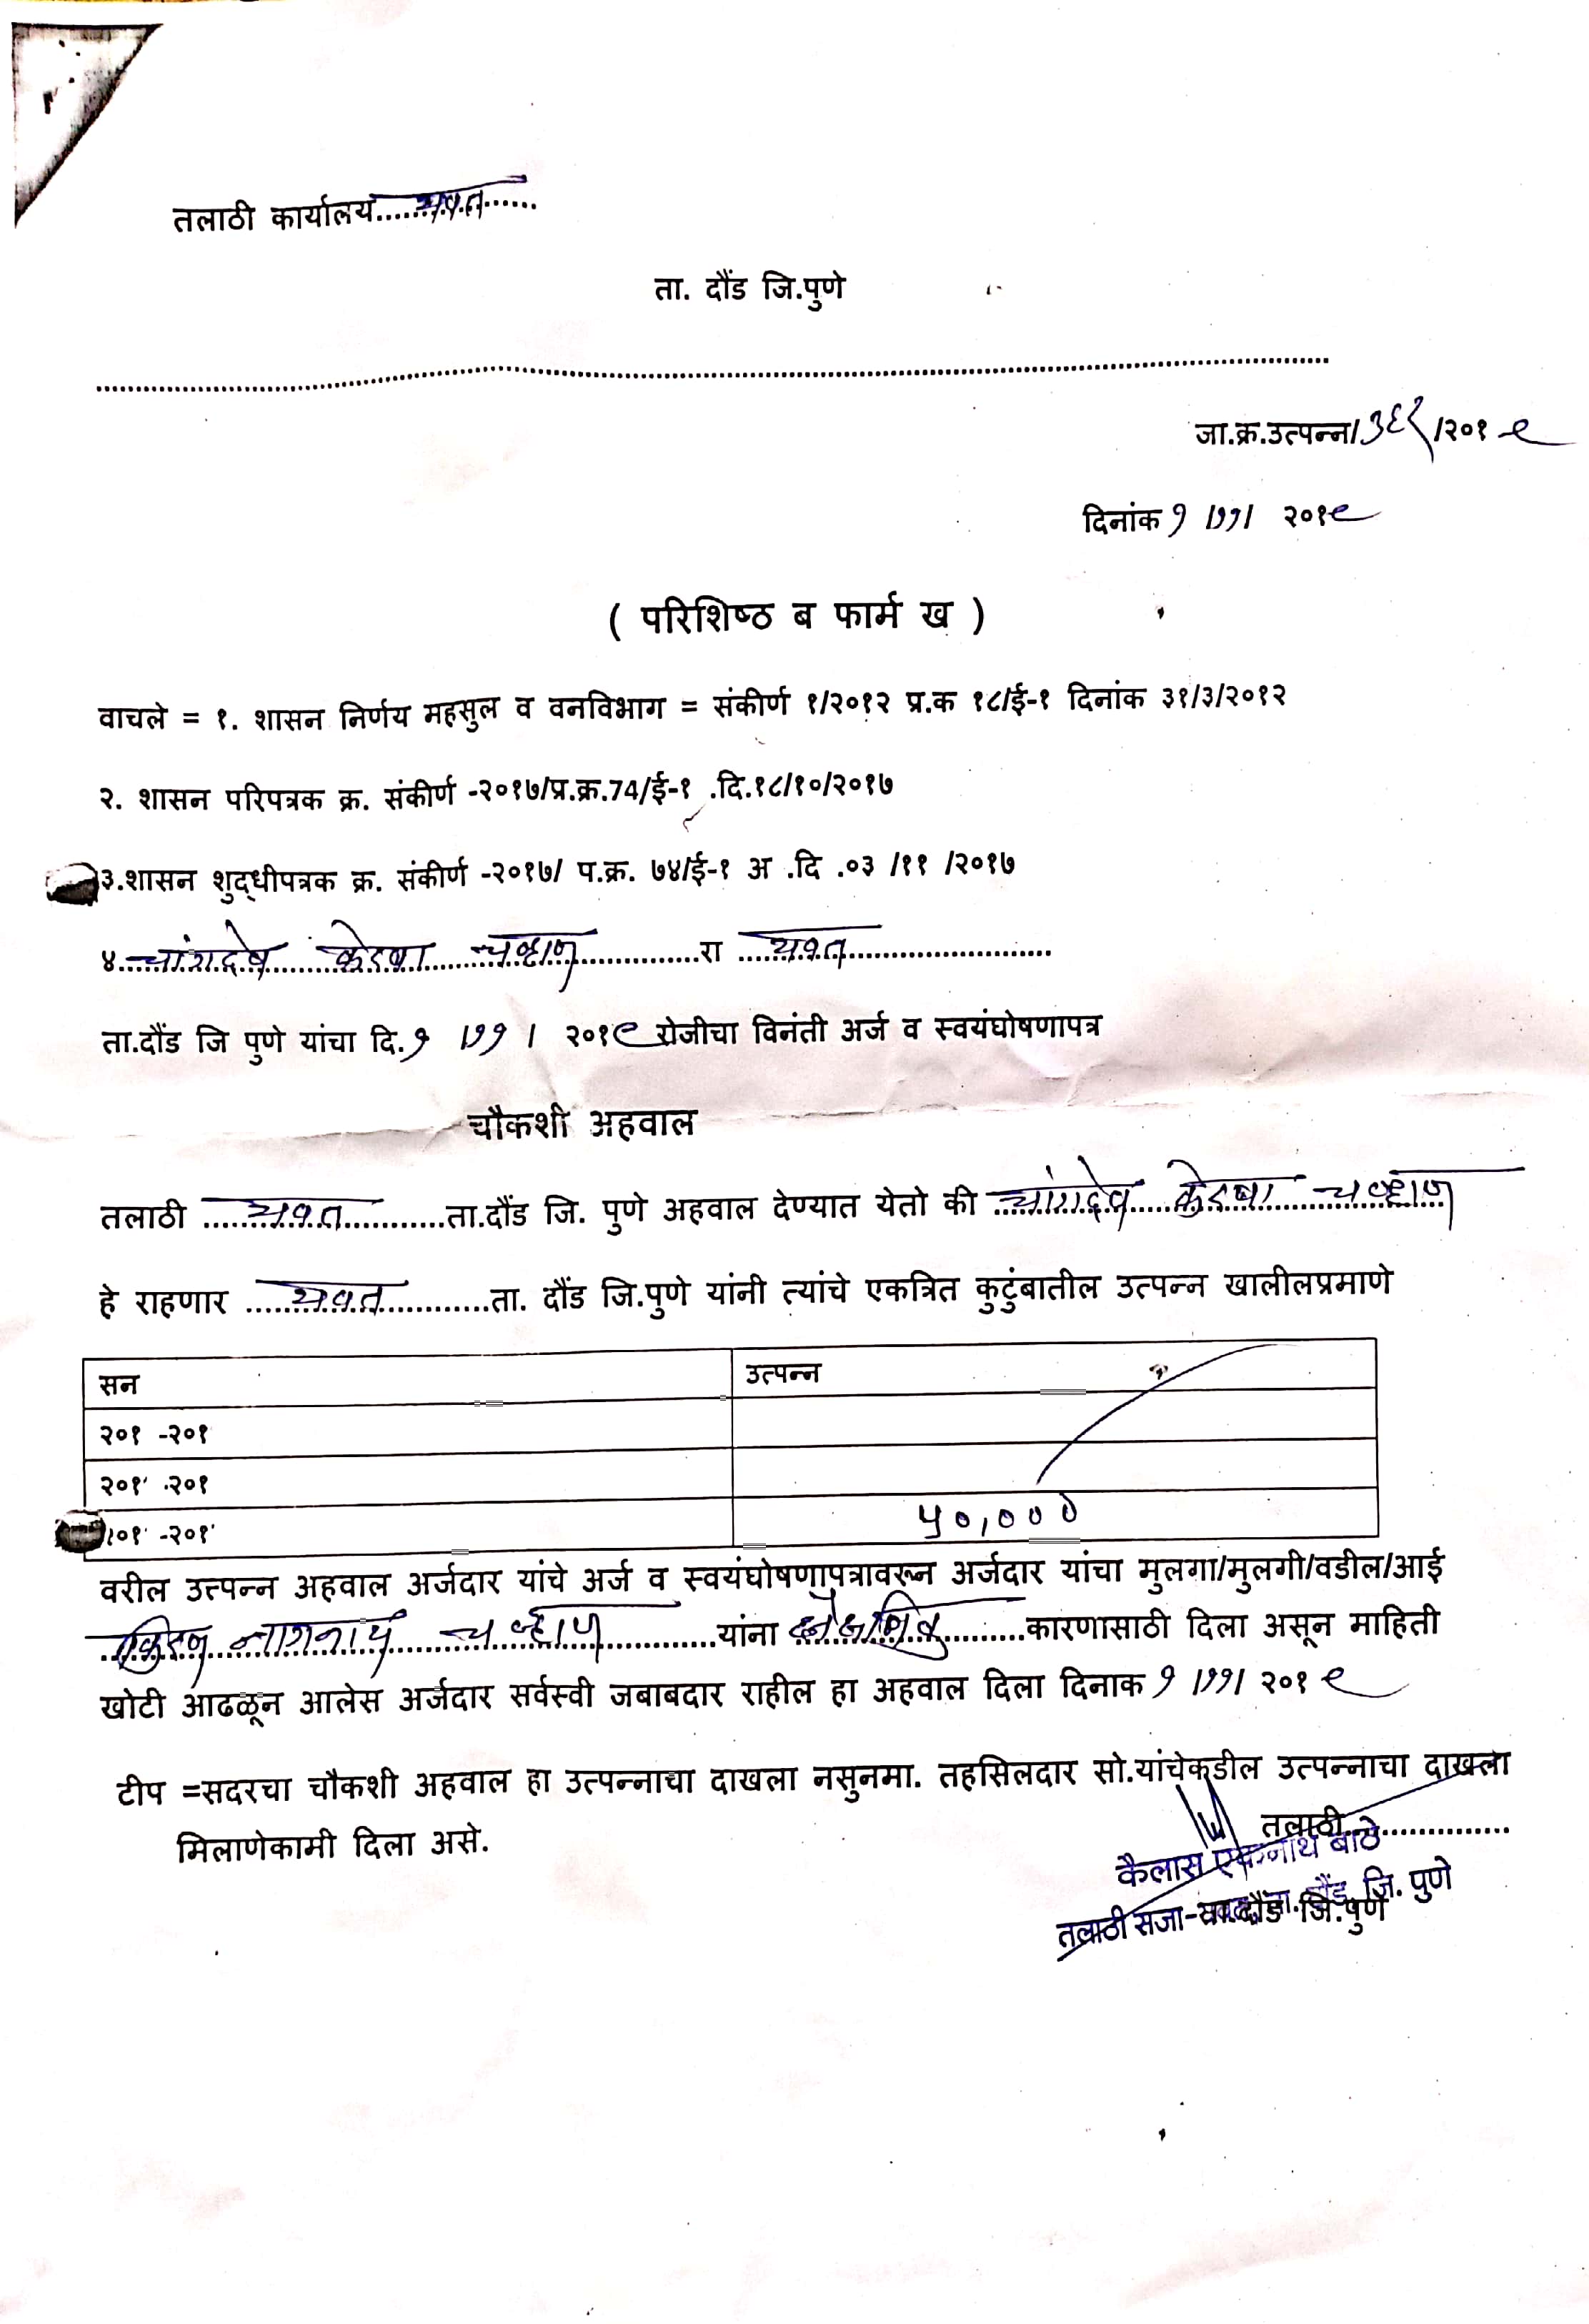 तलाठी कार्यालय......यवत......
ता. दौंड जि.पुणे
जा.क्र.उत्पन्न/३६१/२०१९
दिनांक १ /११/ २०१९
( परिशिष्ठ ब फार्म ख )
वाचले = १. शासन निर्णय महसुल व वनविभाग = संकीर्ण १/२०१२ प्र.क १८/ई-१ दिनांक ३१/३/२०१२
२. शासन परिपत्रक क्र. संकीर्ण -२०१७/प्र.क्र.74/ई-१ .दि.१८/१०/२०१७
३.शासन शुद्धीपत्रक क्र. संकीर्ण -२०१७/ प.क्र. ७४/ई-१ अ .दि .०३ /११ /२०१७
४. चांगदेव चव्हाण रा यवत
ता.दौंड जि पुणे यांचा दि.१ /११ / २०१९ रोजीचा विनंती अर्ज व स्वयंघोषणापत्र
चौकशी अहवाल
तलाठी यवत ता.दौंड जि. पुणे अहवाल देण्यात येतो की चांगदेव चव्हाण
हे राहणार यवत ता. दौंड जि.पुणे यांनी त्यांचे एकत्रित कुटुंबातील उत्पन्न खालीलप्रमाणे
सन उत्पन्न
२०१ -२०१
२०१ -२०१
२०१ -२०१ ५०,०००
वरील उत्त्पन्न अहवाल अर्जदार यांचे अर्ज व स्वयंघोषणापत्रावरून अर्जदार यांचा मुलगा/मुलगी/वडील/आई
चव्हाण यांना शैक्षणिक कारणासाठी दिला असून माहिती
खोटी आढळून आलेस अर्जदार सर्वस्वी जबाबदार राहील हा अहवाल दिला दिनाक १ /११/ २०१९
टीप =सदरचा चौकशी अहवाल हा उत्पन्नाचा दाखला नसुनमा. तहसिलदार सो.यांचेकडील उत्पन्नाचा दाखला
मिलाणेकामी दिला असे.
तलाठी................
कैलास एकनाथ बाठे
तलाठी सजा-यवत, ता. दौंड, जि. पुणे
ता.दौंड जि.पुणे